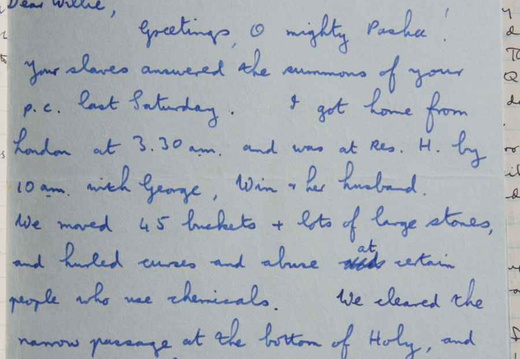 Dear Willie,
Greetings, O mighty Pasha!
Your slaves answered the summons of your
p.c. last Saturday. I got home from
London at 3.30 am. and was at Res. H. by
10 am. with George, Win & her husband.
We moved 45 buckets + lots of large stones,
and hurled curses and abuse at certain
people who use chemicals. We cleared the
narrow passage at the bottom of Holy, and